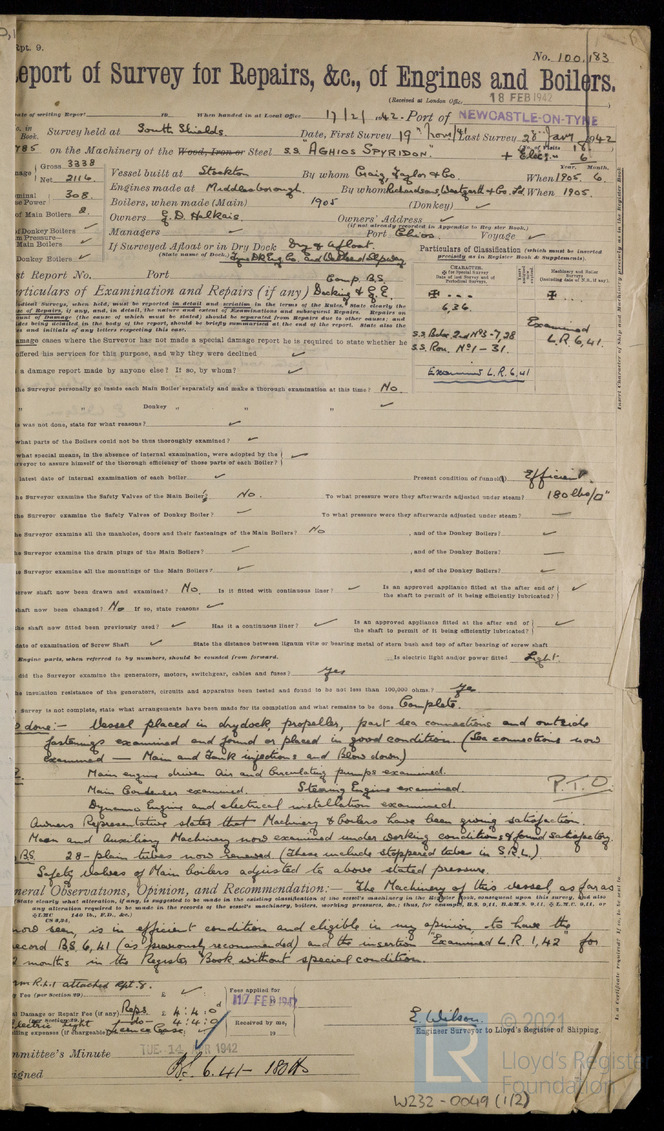 Rpt. 9.
No. 100,183
eport of Survey for Repairs, &c., of Engines and Boilers.
(Received at London Office
18 FEB 1942
ate of writing Report 19 When handed in at Local Office 17/2/1942. Port of NEWCASTLE-ON-TYNE
o. in Book. Survey held at South Shields. Date, First Survey 19th Nov/41 Last Survey 28th Jany 1942
785 on the Machinery of the Wood, Iron or Steel S.S. "AGHIOS SPYRIDON." No. of Visits 18
+ Elec. 6
Gross 3338
Net 2116
Vessel built at Stockton By whom Craig, Taylor & Co. When 1905 Year. Month. 6
Engines made at Middlesborough. By whom Richardsons, Westgarth & Co. Ld. When 1905.
minal Power 308
of Main Boilers 2
Boilers, when made (Main) 1905 (Donkey)
Owners G. D. Halkias. Owners' Address
(if not already recorded in Appendix to Register Book.)
of Donkey Boilers
Managers Port Chios. Voyage
m Pressure—
Main Boilers
Donkey Boilers
If Surveyed Afloat or in Dry Dock Dry & Afloat.
(State name of Dock.)
Particulars of Classification (which must be inserted precisely as in Register Book & Supplements).
st Report No. Port
Comp. B.S.
rticulars of Examination and Repairs (if any) Docking & G.E.
CHARACTER.
6,36.
S.S. No 3-7,28
S.S. No 1-31.
Examined L.R. 6,41
Examined L.R. 6,41.
amage cases where the Surveyor has not made a special damage report he is required to state whether he
offered his services for this purpose, and why they were declined
s a damage report made by anyone else? If so, by whom?
he Surveyor personally go inside each Main Boiler separately and make a thorough examination at this time? No.
" " Donkey " "
is was not done, state for what reasons?
what parts of the Boilers could not be thoroughly examined?
what special means, in the absence of internal examination, were adopted by the
rveyor to assure himself of the thorough efficiency of those parts of each Boiler?
latest date of internal examination of each boiler Present condition of funnel(s) Efficient.
he Surveyor examine the Safety Valves of the Main Boilers? No. To what pressure were they afterwards adjusted under steam? 180 lbs/□"
he Surveyor examine the Safety Valves of Donkey Boiler? To what pressure were they afterwards adjusted under steam?
he Surveyor examine all the manholes, doors and their fastenings of the Main Boilers? No , and of the Donkey Boilers?
he Surveyor examine the drain plugs of the Main Boilers? , and of the Donkey Boilers?
he Surveyor examine all the mountings of the Main Boilers? , and of the Donkey Boilers?
crew shaft now been drawn and examined? No. Is it fitted with continuous liner? Is an approved appliance fitted at the after end of the shaft to permit of it being efficiently lubricated?
shaft now been changed? No If so, state reasons
he shaft now fitted been previously used? Has it a continuous liner? Is an approved appliance fitted at the after end of the shaft to permit of it being efficiently lubricated?
date of examination of Screw Shaft State the distance between lignum vitæ or bearing metal of stern bush and top of after bearing of screw shaft
Engine parts, when referred to by numbers, should be counted from forward. Is electric light and/or power fitted Light.
did the Surveyor examine the generators, motors, switchgear, cables and fuses? Yes
he insulation resistance of the generators, circuits and apparatus been tested and found to be not less than 100,000 ohms? Yes
Survey is not complete, state what arrangements have been made for its completion and what remains to be done Complete.
done:- Vessel placed in drydock, propeller, part sea connections and outside
fastenings examined and found or placed in good condition. (Sea connections now
examined — Main and Tank injections and Blow down)
Main engine driven Air and Circulating pumps examined.
Main Condenser examined. Steering Engine examined. P.T.O.
Dynamo Engine and electrical installation examined.
Owners Representative states that Machinery & boilers have been giving satisfaction.
Main and Auxiliary Machinery now examined under working conditions & found satisfactory.
BS. 28-plain tubes now renewed (These include stoppered tubes in S.R.L.)
Safety valves of Main boilers adjusted to above stated pressure.
neral Observations, Opinion, and Recommendation:— The Machinery of this vessel, as far as
now seen, is in efficient condition and eligible in my opinion, to have the
ecord B.S. 6,41 (as previously recommended) and the insertion "Examined L.R. 1,42" for
months in the Register Book without special condition.
attached Rpt. 8.
y Fee (per Section 29) £
Fees applied for
17 FEB 1942
al Damage or Repair Fee (if any) Reps £ 4:4:0
electric Light do 4:4:0
elling expenses (if chargeable) £
Received by me,
19
E. Wilson
Engineer Surveyor to Lloyd's Register of Shipping.
mmittee's Minute TUE. 14 APR 1942
signed B.S. 6.41 - 180 lb
© 2021
LR
Lloyd's Register
Foundation
W232-0049 (1/2)